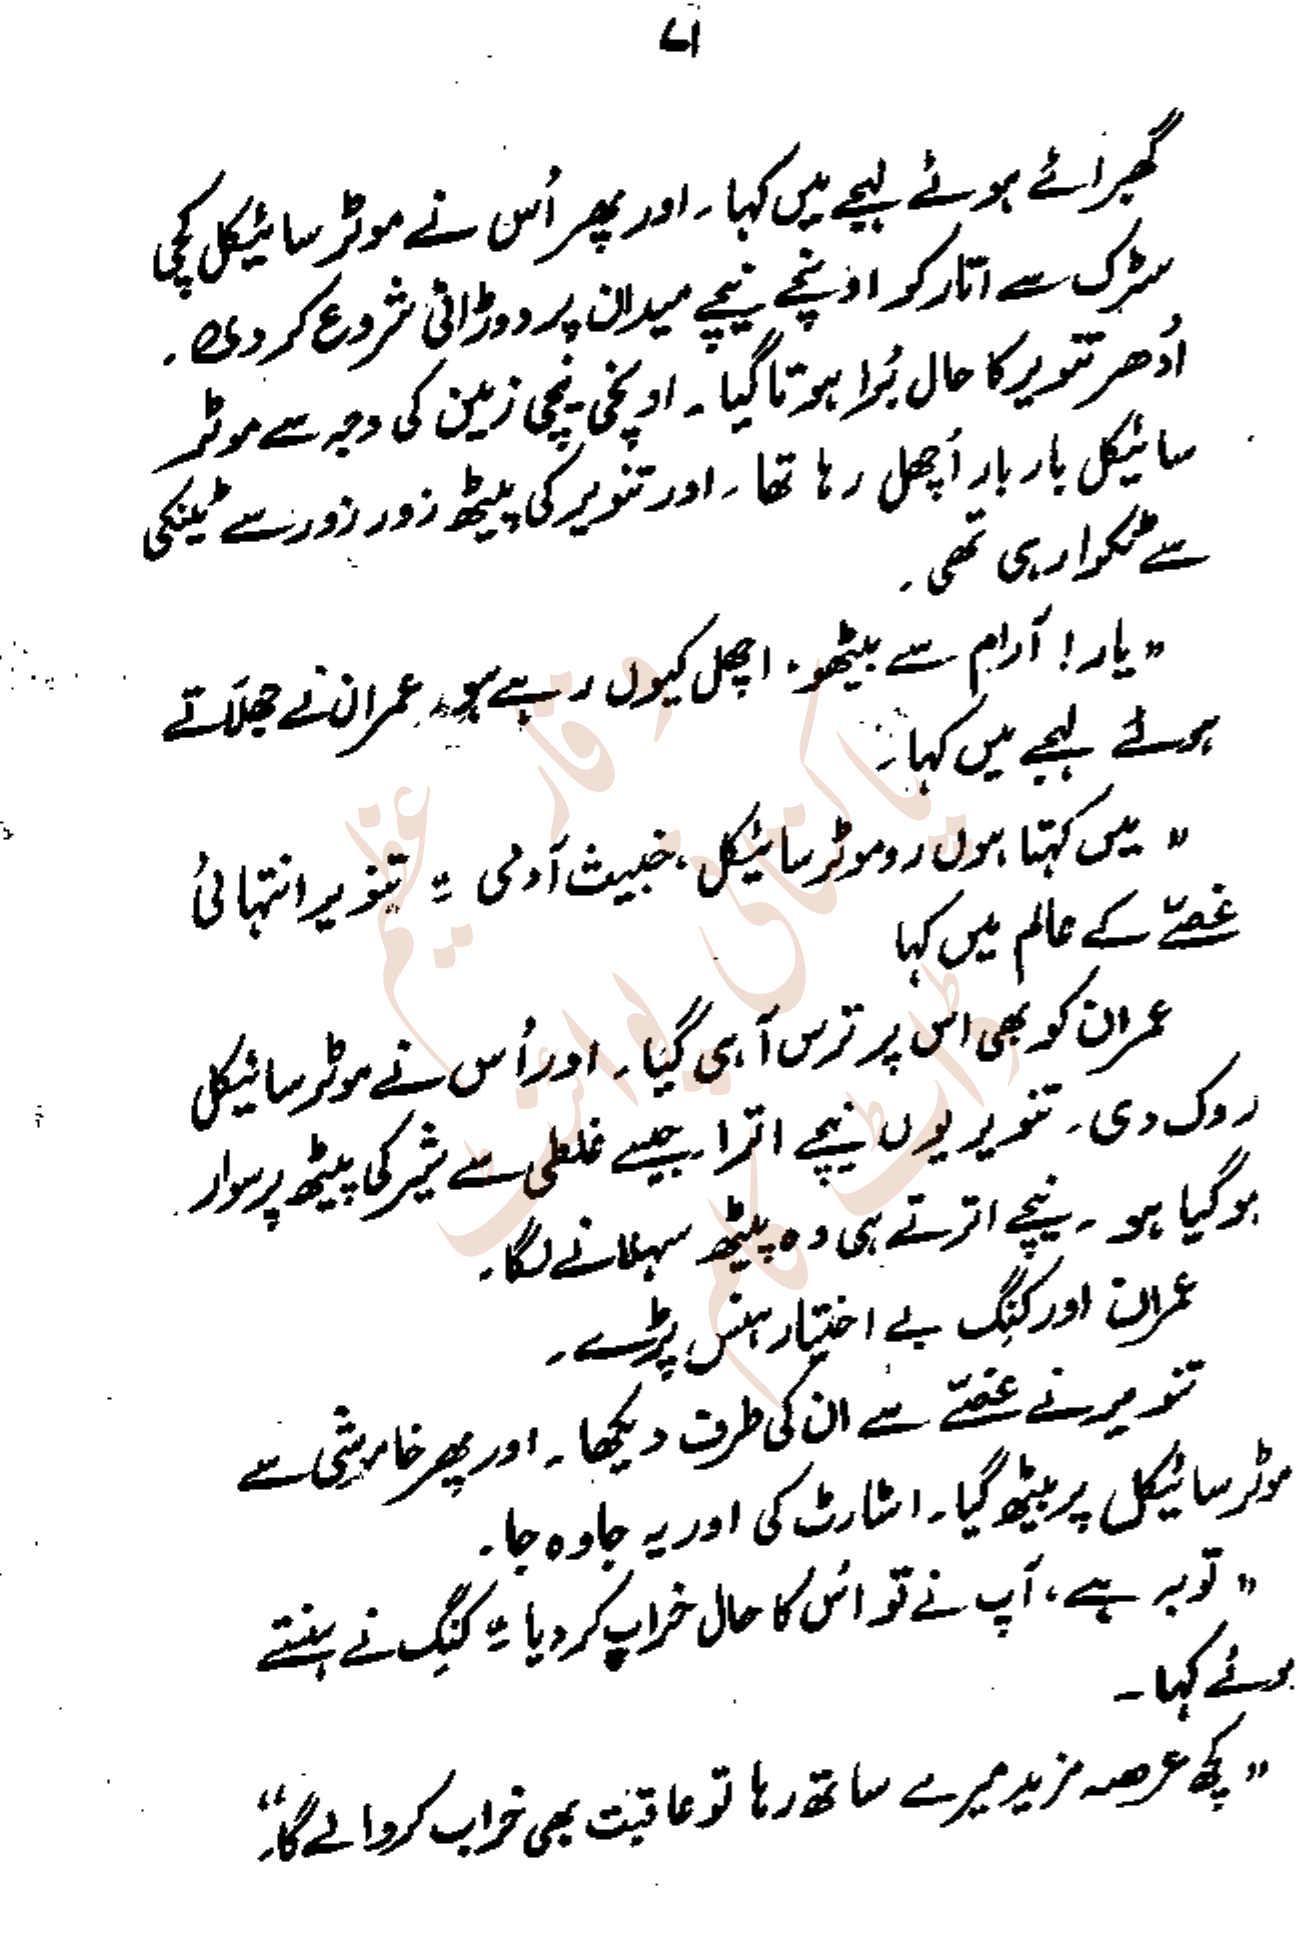 ۷۱
گھبرائے ہوئے لہجے میں کہا۔ اور پھر اُس نے موٹر سائیکل کچی
سڑک سے اتار کر اونچے نیچے میدان پر دوڑانی شروع کر دی۔
اُدھر تنویر کا حال بُرا ہوتا گیا۔ اونچی نیچی زمین کی وجہ سے موٹر
سائیکل بار بار اُچھل رہا تھا۔ اور تنویر کی پیٹھ زور زور سے ٹینکی
سے ٹکرا رہی تھی۔
"یار! آرام سے بیٹھو۔ اچھل کیوں رہے ہو"۔ عمران نے جھلاتے
ہوئے لہجے میں کہا۔
"میں کہتا ہوں روموٹر سائیکل، خبیث آدمی"۔ تنویر انتہائی
غصّے کے عالم میں کہا
عمران کو بھی اس پر ترس آ ہی گیا۔ اور اُس نے موٹر سائیکل
روک دی۔ تنویر یوں نیچے اترا جیسے غلطی سے شیر کی پیٹھ پر سوار
ہو گیا ہو۔ نیچے اترتے ہی وہ پیٹھ سہلانے لگا۔
عمران اور کنگ بے اختیار ہنس پڑے۔
تنویر نے غصّے سے ان کی طرف دیکھا۔ اور پھر خاموشی سے
موٹر سائیکل پر بیٹھ گیا۔ اسٹارٹ کی اور یہ جا وہ جا۔
"توبہ ہے، آپ نے تو اُس کا حال خراب کر دیا"۔ کنگ نے ہنستے
ہوئے کہا۔
"کچھ عرصہ مزید میرے ساتھ رہا تو عاقبت بھی خراب کروا لے گا۔"
وقار عظیم
پاکستانی پوائنٹ
ڈاٹ کام